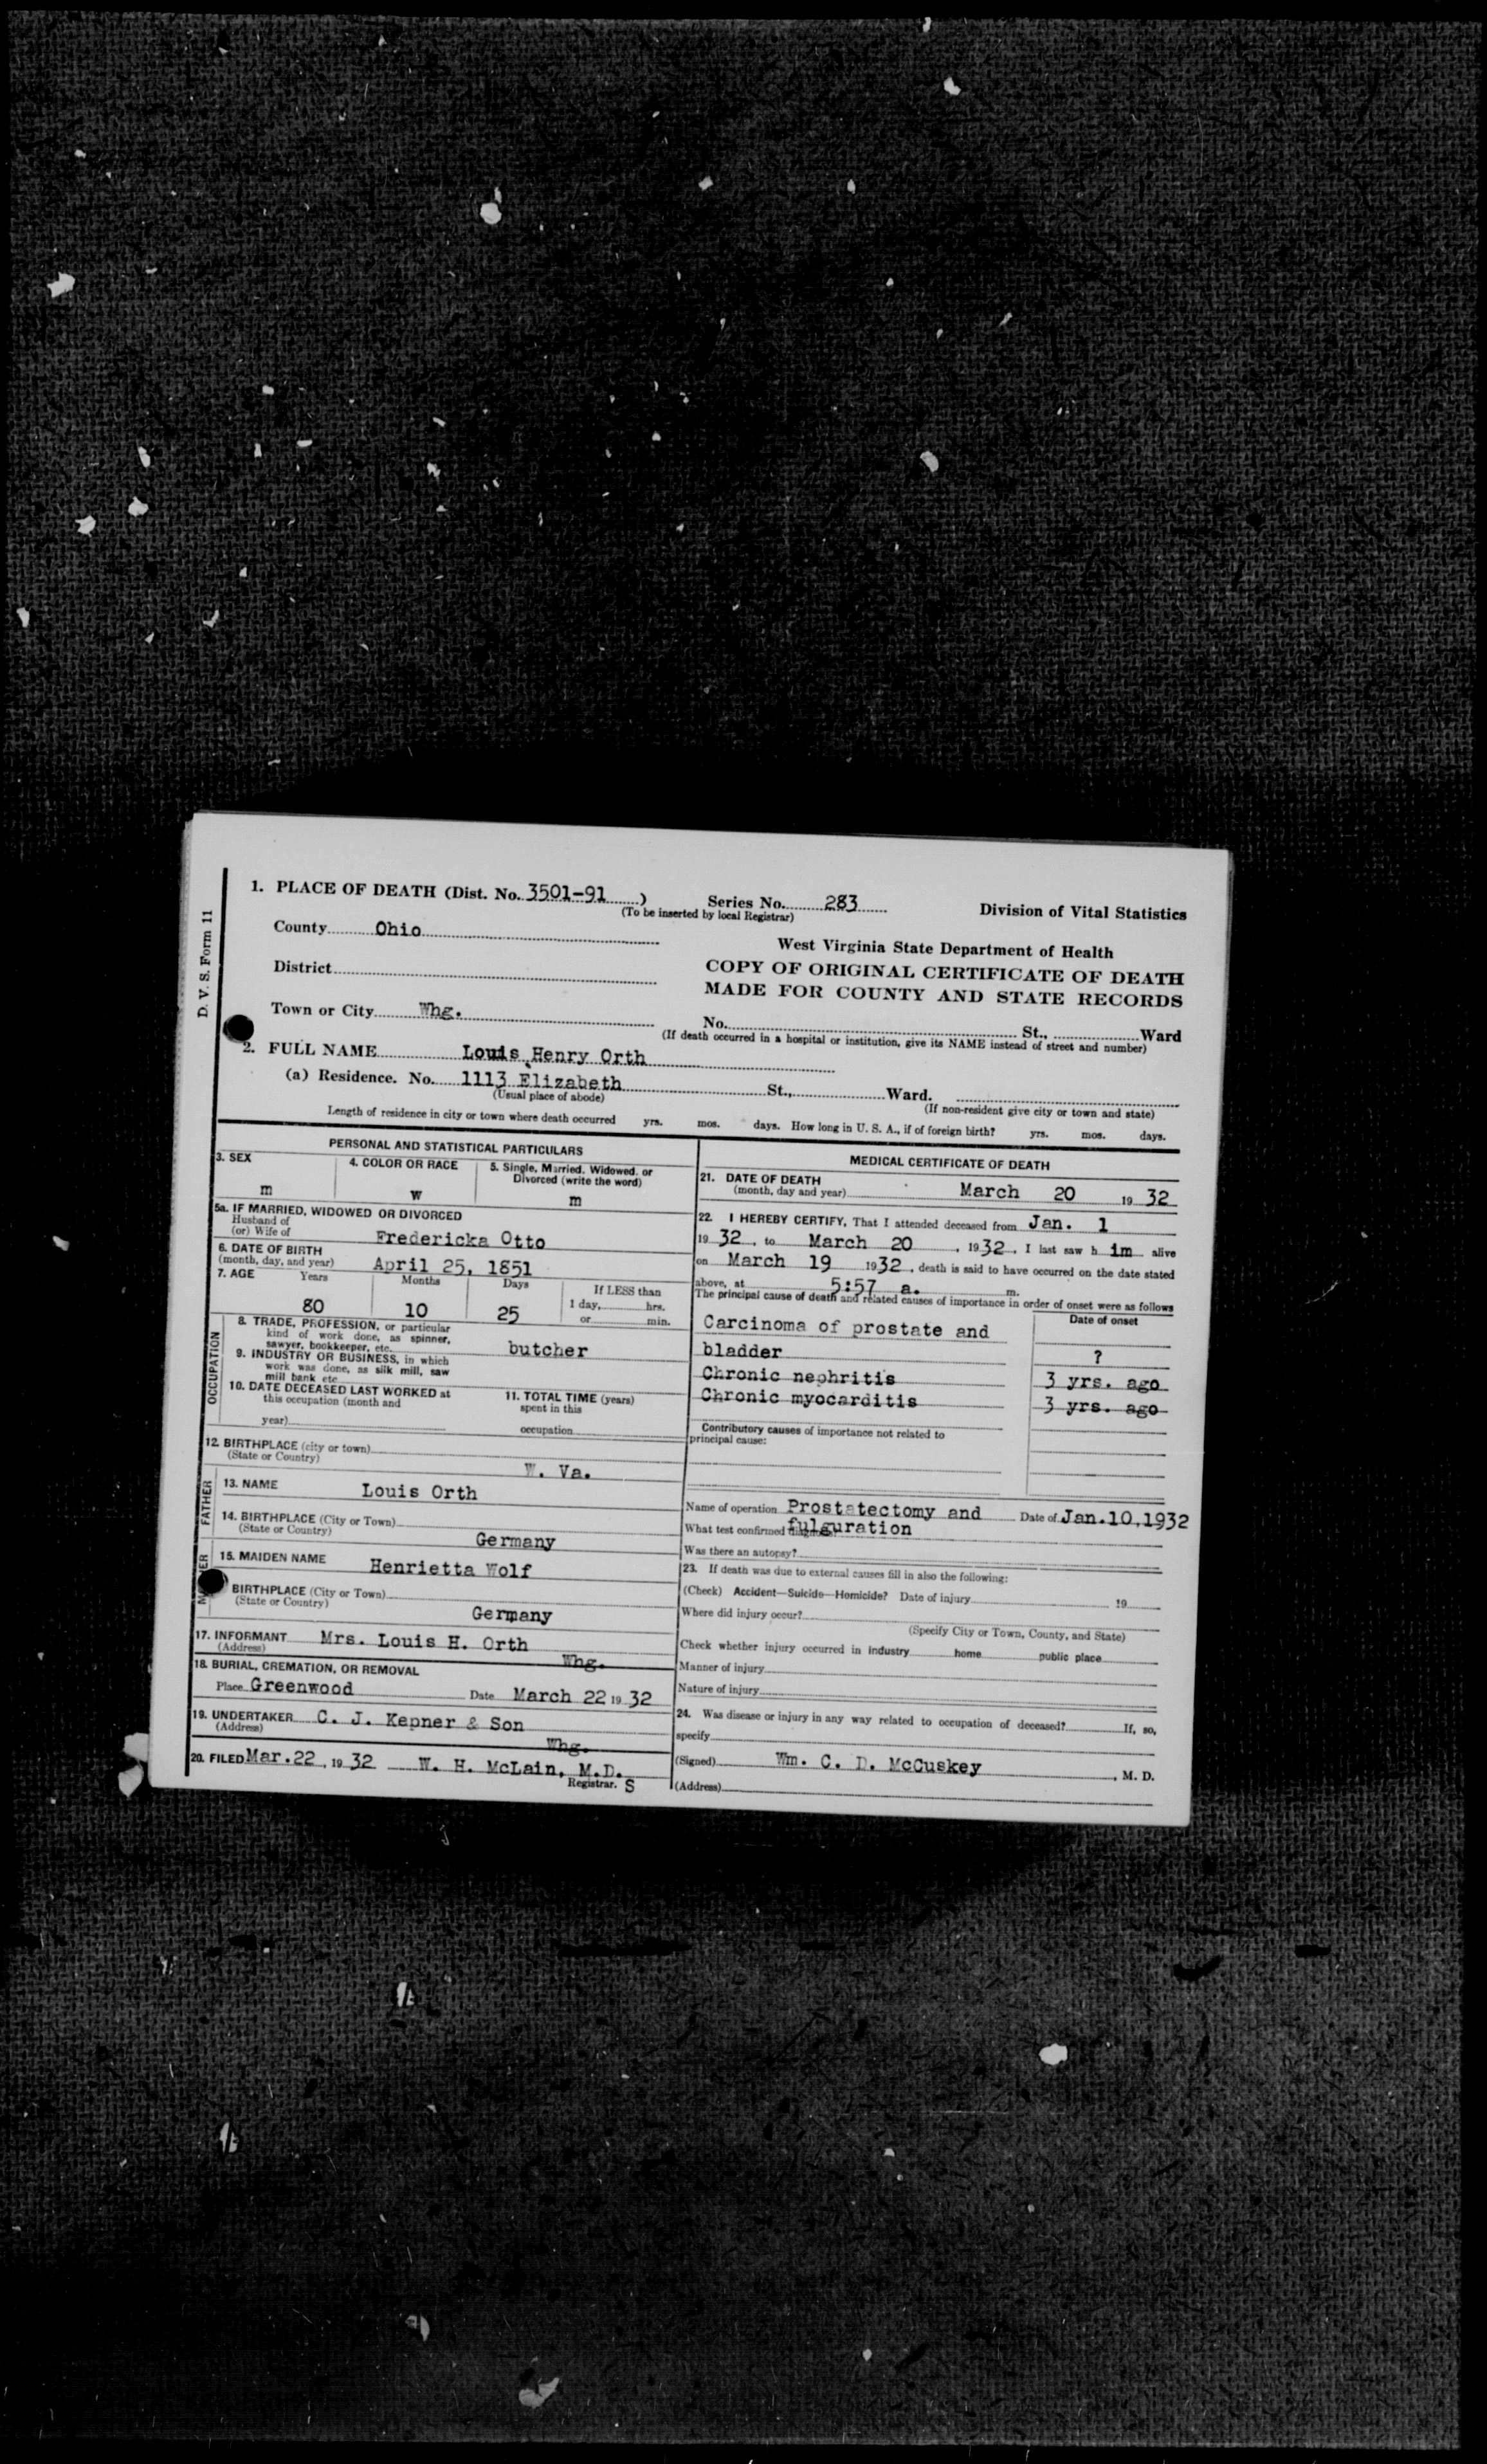 D. V. S. Form 11
1. PLACE OF DEATH (Dist. No. 3501-91 )
Series No. 283
(To be inserted by local Registrar)
Division of Vital Statistics
County Ohio
West Virginia State Department of Health
District
COPY OF ORIGINAL CERTIFICATE OF DEATH
MADE FOR COUNTY AND STATE RECORDS
Town or City Whg.
No. St., Ward
(If death occurred in a hospital or institution, give its NAME instead of street and number)
2. FULL NAME Louis Henry Orth
(a) Residence. No. 1113 Elizabeth St., Ward.
(Usual place of abode)
(If non-resident give city or town and state)
Length of residence in city or town where death occurred yrs. mos. days. How long in U. S. A., if of foreign birth? yrs. mos. days.
PERSONAL AND STATISTICAL PARTICULARS
3. SEX
m
4. COLOR OR RACE
w
5. Single, Married, Widowed, or
Divorced (write the word)
m
5a. IF MARRIED, WIDOWED OR DIVORCED
Husband of
(or) Wife of Fredericka Otto
6. DATE OF BIRTH
(month, day, and year) April 25, 1851
7. AGE Years Months Days
If LESS than
1 day, hrs.
or min.
80 10 25
OCCUPATION
8. TRADE, PROFESSION, or particular
kind of work done, as spinner,
sawyer, bookkeeper, etc. butcher
9. INDUSTRY OR BUSINESS, in which
work was done, as silk mill, saw
mill bank etc
10. DATE DECEASED LAST WORKED at
this occupation (month and
year)
11. TOTAL TIME (years)
spent in this
occupation
12. BIRTHPLACE (city or town)
(State or Country) W. Va.
FATHER
13. NAME Louis Orth
14. BIRTHPLACE (City or Town)
(State or Country) Germany
15. MAIDEN NAME Henrietta Wolf
BIRTHPLACE (City or Town)
(State or Country) Germany
17. INFORMANT Mrs. Louis H. Orth
(Address) Whg.
18. BURIAL, CREMATION, OR REMOVAL
Place Greenwood Date March 22 19 32
19. UNDERTAKER C. J. Kepner & Son
(Address) Whg.
20. FILED Mar. 22, 19 32 W. H. McLain, M.D.
Registrar. S
MEDICAL CERTIFICATE OF DEATH
21. DATE OF DEATH
(month, day and year) March 20 19 32
22. I HEREBY CERTIFY, That I attended deceased from Jan. 1
19 32, to March 20, 19 32. I last saw h im alive
on March 19 19 32, death is said to have occurred on the date stated
above, at 5:57 a. m.
The principal cause of death and related causes of importance in order of onset were as follows
Date of onset
Carcinoma of prostate and
bladder ?
Chronic nephritis 3 yrs. ago
Chronic myocarditis 3 yrs. ago
Contributory causes of importance not related to
principal cause:
Name of operation Prostatectomy and Date of Jan. 10, 1932
What test confirmed fulguration
Was there an autopsy?
23. If death was due to external causes fill in also the following:
(Check) Accident—Suicide—Homicide? Date of injury 19
Where did injury occur?
(Specify City or Town, County, and State)
Check whether injury occurred in industry home public place
Manner of injury
Nature of injury
24. Was disease or injury in any way related to occupation of deceased? If, so,
specify
(Signed) Wm. C. D. McCuskey, M. D.
(Address)